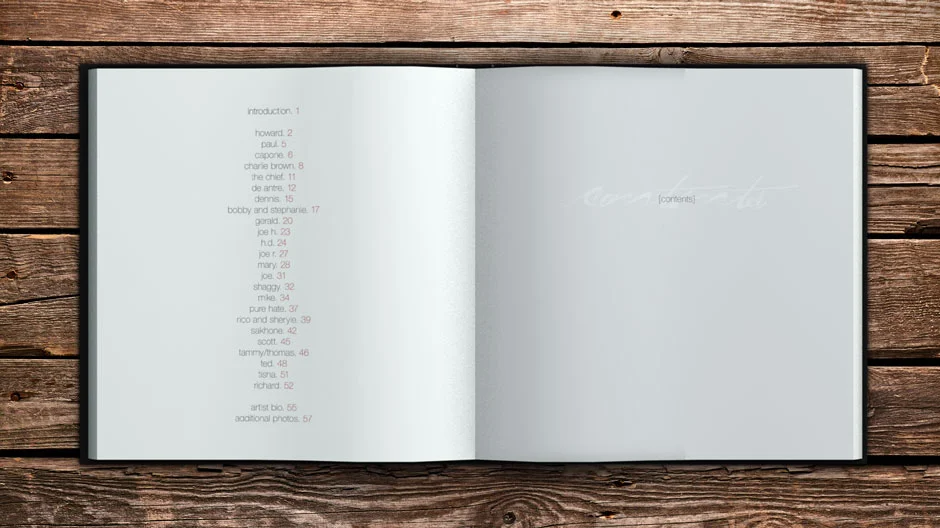 introduction. 1
howard. 2
paul. 5
capone. 6
charlie brown. 8
the chief. 11
de antre. 12
dennis. 15
bobby and stephanie. 17
gerald. 20
joe h. 23
h.d. 24
joe r. 27
mary. 28
joe. 31
shaggy. 32
mike. 34
pure hate. 37
rico and sheryle. 39
sakhone. 42
scott. 45
tammy/thomas. 46
ted. 48
tisha. 51
richard. 52
artist bio. 55
additional photos. 57
[contents]